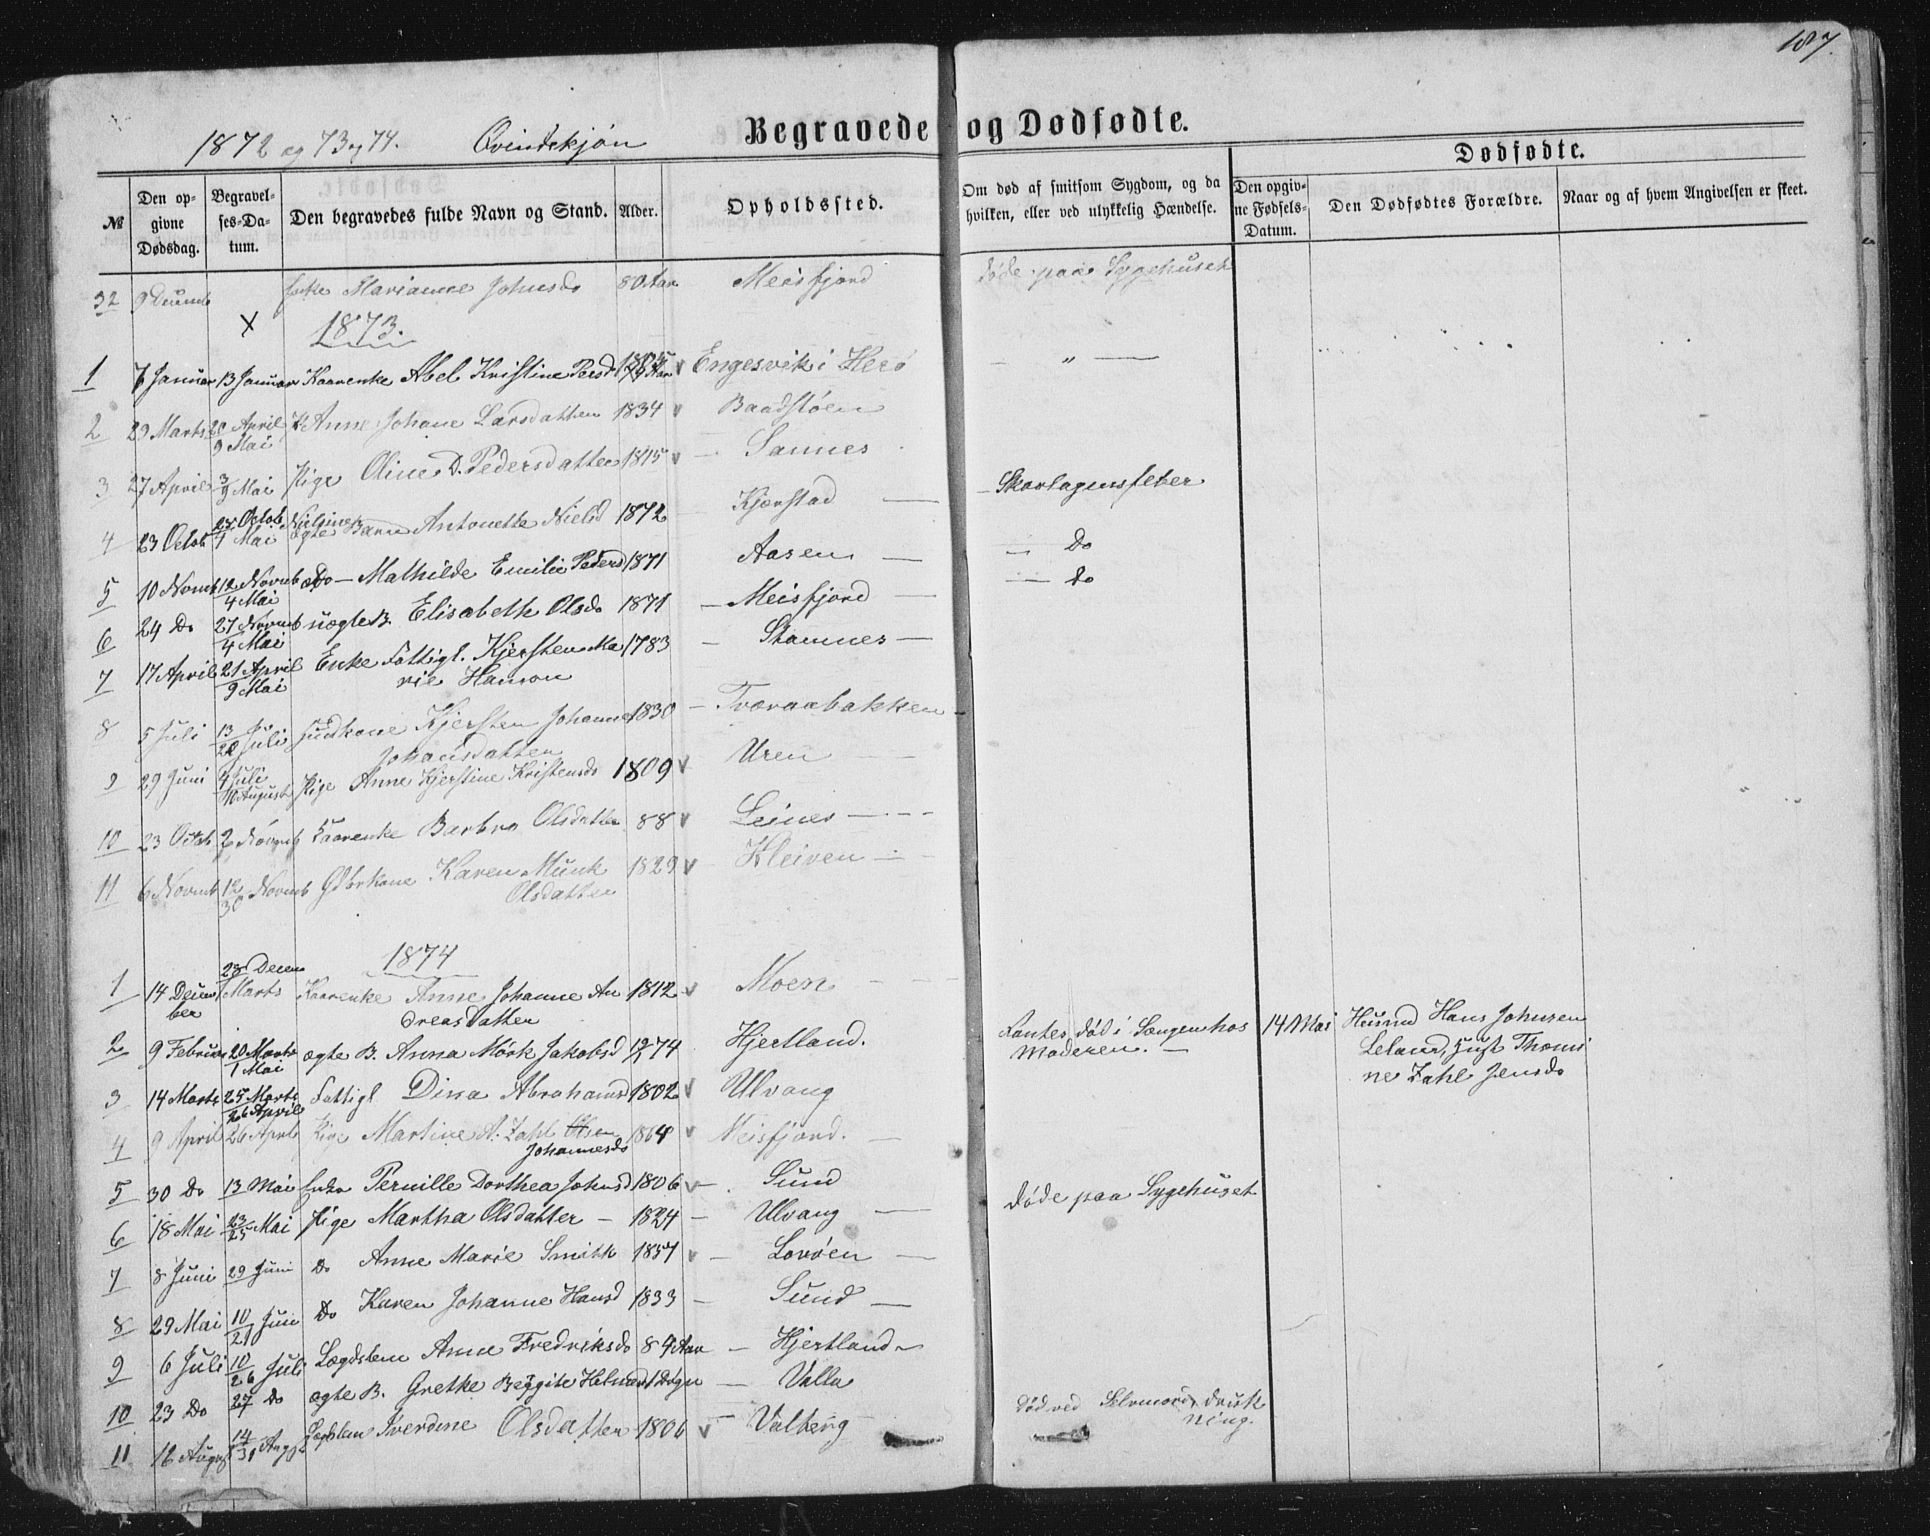 187.
1872 og 73 og 74. Qvindekjøn Begravede og Dødfødte.
Dødfødte.
№ Den opgivne Dødsdag. Begravelses-Datum. Den begravedes fulde Navn og Stand. Alder. Opholdssted. Om død af smitsom Sygdom, og da hvilken, eller ved ulykkelig Hændelse. Den opgivne Fødsels-Datum. Den Dødfødtes Forældre. Naar og af hvem Angivelsen er skeet.
32 Marianne Johnsd 80 Aar Meisfjord døde paa Sygehuset
1873.
1 7 Januar 13 Januar Kaarenke Abel Kristine Persd Engesvik i Herø
2 29 Marts 20 April Anne Johane Larsdatten 1834 Baadstøen
9 Mai
3 27 April 3/9 Mai Pige Oline D. Pedersdatten 1815 Sannes
4 23 Octob 27 Octob Nielsine 1872 Kjærstad Skarlagensfeber
1 Mai ægte Barn Antonette Nielsd
5 10 Novmb 12 Novmb Do Mathilde Emilie Peders 1871 Aasen Do
4 Mai
6 24 Do 27 Novmb uægte B. Elisabeth Olsd 1871 Meisfjord do
4 Mai
7 17 April 21 April Enke Fattigl. Kjersten Ma 1783 Stamnes
9 Mai rie Hanson
8 5 Juli 13/20 Juli Kjersten Johanne 1830 Tveraabakken
Johansdatten
9 29 Juni 4 Juli Pige Anne Kjerstine Kristensd 1809 Uren
10 August
10 23 Octob 2 Novmb Kaarenke Barbro Olsdatter 88 Leines
11 6 Novmb 12/30 Novmb Gdbrkone Karen Munk 1829 Kleiven
Olsdatter
1874
1 14 Decem 28 Decem Kaarenke Anne Johanne An 1812 Moen
ber 1 Marts dreasdatter
2 9 Februar 20 Marts ægte B. Anna Mørk Jakobsd 74 Hjertland. død i Sængen hos 14 Mai Husmd Hans Johnsen
1 Mai Moderen. Leland, Hust Thomi
ne Zahl Jensd
3 14 Marts 25 Marts Fattigl Dina Abrahamsd 1802 Ulvang
26 April
4 9 April 26 April Martine A. Zahl Olsen 1864 Meisfjord.
Johannesd
5 30 Do 13 Mai Enke Pernille Dorthea Johnsd 1806 Sund døde paa Sygehuset
6 18 Mai 23/25 Mai Pige Martha Olsdatter 1824 Ulvang
7 8 Juni 29 Juni Do Anne Marie Smith 1857 Lovøen
8 29 Mai 10/21 Juni Do Karen Johanne Hansd 1833 Sund
9 6 Juli 10/26 Juli Lægdslem Anne Fredriksd 84 Aar Hjertland
10 23 Do 27 Do ægte B. Grethe Døgn Valla
11 16 August 14/31 Aug Lægdslem Iverdine Olsdatter 1806 Valberg død ved Selvmord, druk
ning.